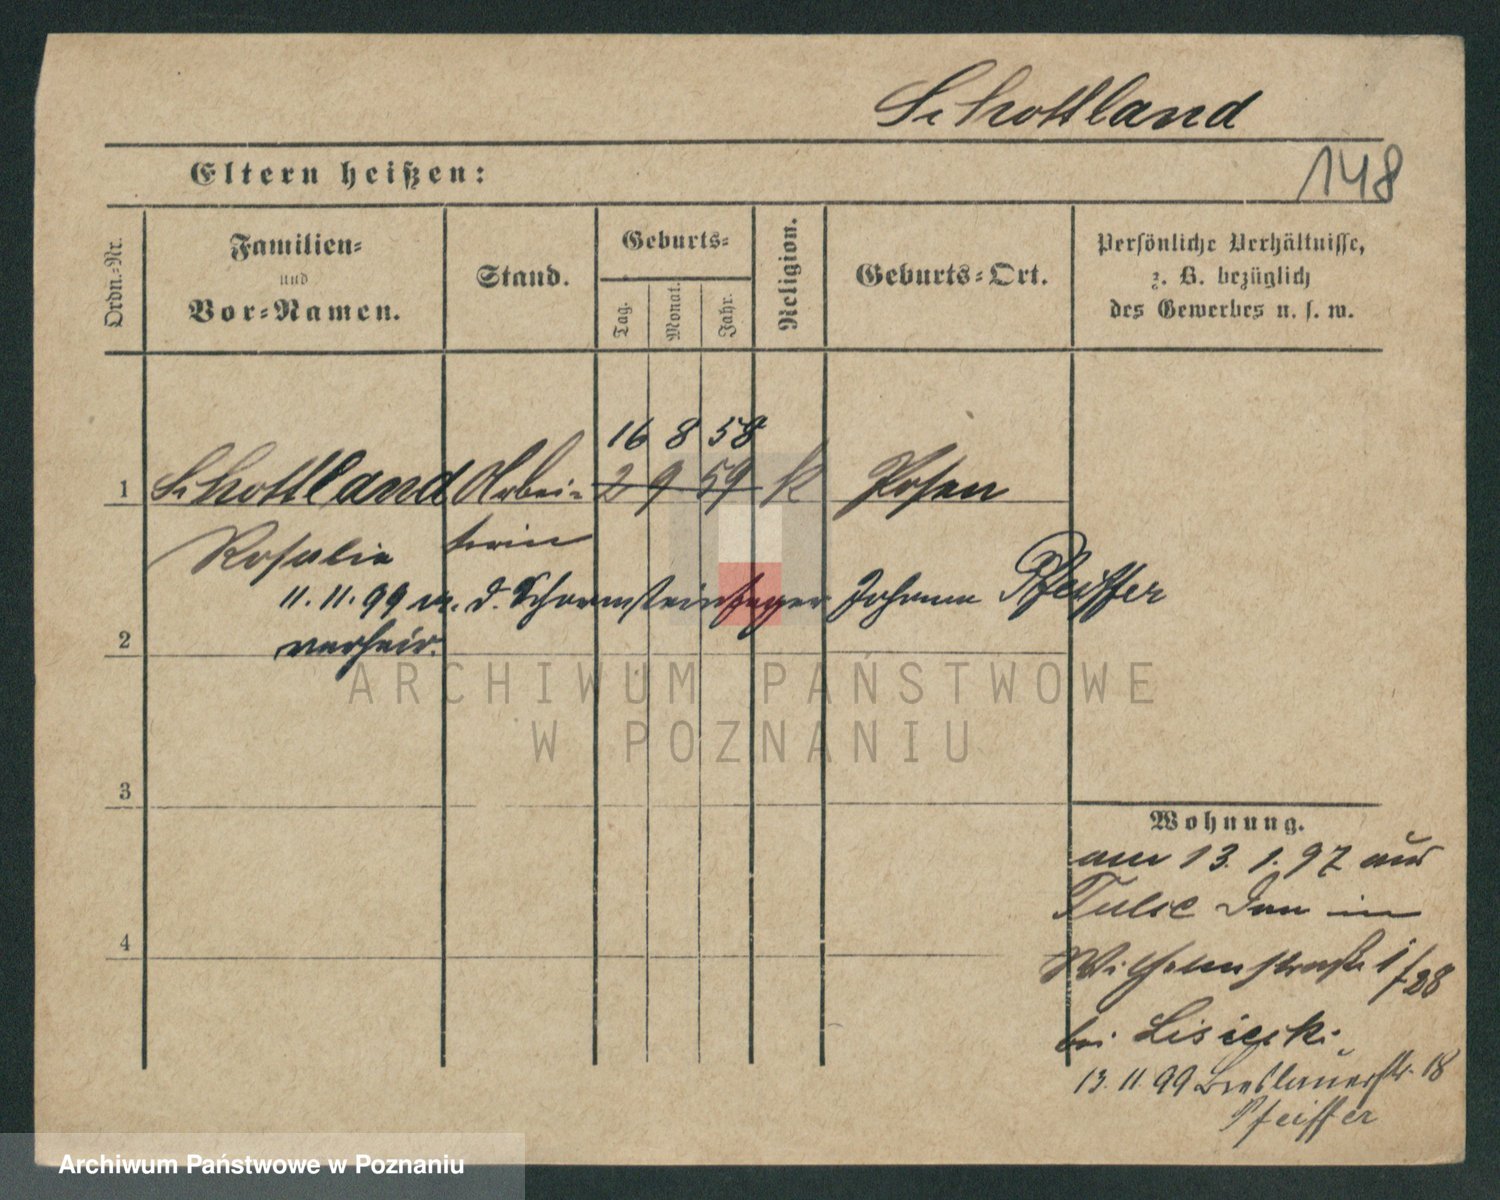 Schottland
148
Eltern heißen:
Ordn.=Nr.
Familien=
und
Vor=Namen.
Stand.
Geburts=
Tag.
Monat.
Jahr.
Religion.
Geburts=Ort.
Persönliche Verhältnisse,
z. B. bezüglich
des Gewerbes u. s. w.
16 8 58
1 Schottland Arbei= 2 9 59 k Posen
Rosalie terin
11. 11. 99 m. d. Schornsteinfeger Johann Pfeiffer
2 verheir.
3
4
Wohnung.
am 13. 1. 97 aus
in
Wilhelmstraße 1/28
bei Lisiecki
13. 11 99 Breslauerstr. 18
Pfeiffer
ARCHIWUM PAŃSTWOWE
W POZNANIU
Archiwum Państwowe w Poznaniu